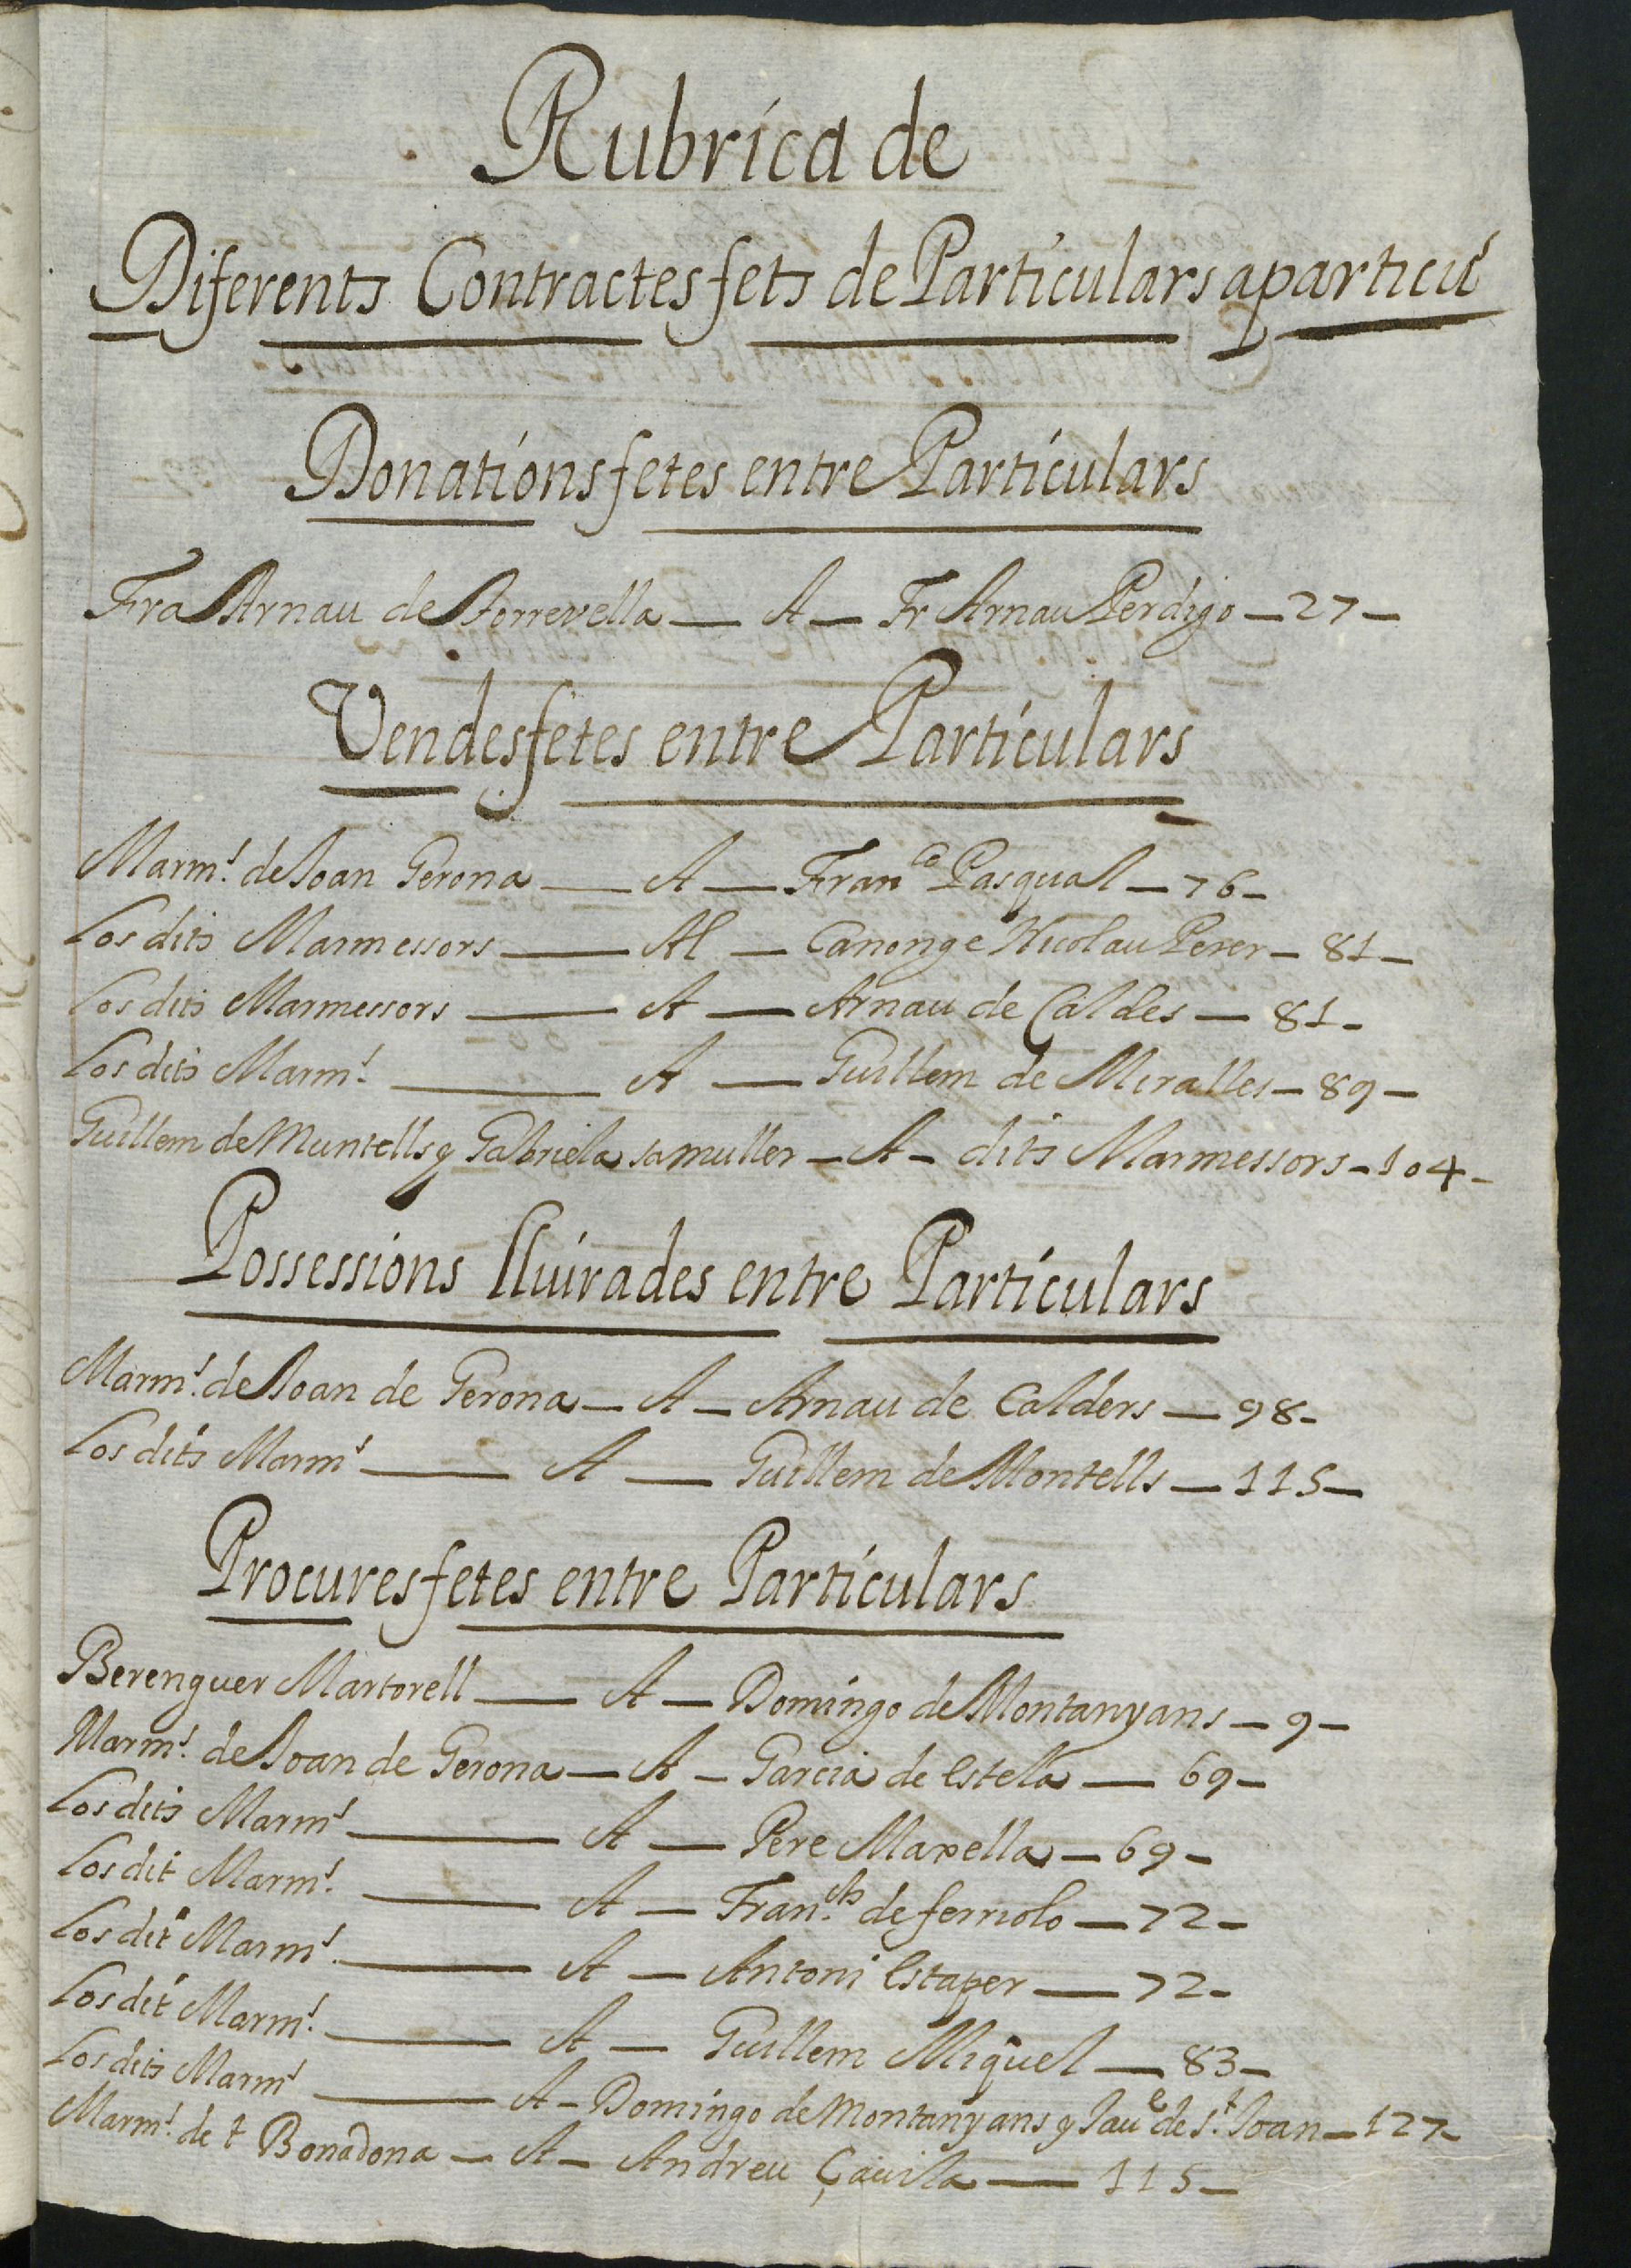 Rubrica de
Diferents Contractes fets de Particulars a particu.s
Donations fetes entre Particulars
Fra Arnau de Torrevella — A — Fr Arnau Perdigo — 27 —
Vendes fetes entre Particulars
Marm.s de Joan Gerona — A — Fran.co Pasqual — 76 —
Los dits Marmessors — Al — Canonge Nicolau Perer — 81 —
Los dits Marmessors — A — Arnau de Caldes — 81 —
Los dits Marm.s — A — Guillem de Miralles — 89 —
Guillem de Muntells y Gabriela sa muller — A — dits Marmessors — 104 —
Possessions lluirades entre Particulars
Marm.s de Joan de Gerona — A — Arnau de Calders — 98 —
Los dits Marm.s — A — Guillem de Montells — 115 —
Procures fetes entre Particulars
Berenguer Martorell — A — Domingo de Montanyans — 9 —
Marm.s de Joan de Gerona — A — Garcia de Estella — 69 —
Los dits Marm.s — A — Pere Maxella — 69 —
Los dit Marm.s — A — Fran.ch de ferriolo — 72 —
Los dit Marm.s — A — Antoni Estaper — 72 —
Los dit Marm.s — A — Guillem Miquel — 83 —
Los dits Marm.s — A — Domingo de Montanyans y Jau.e de S.t Joan — 127 —
Marm.s de t Bonadona — A — Andreu Çavila — 115 —